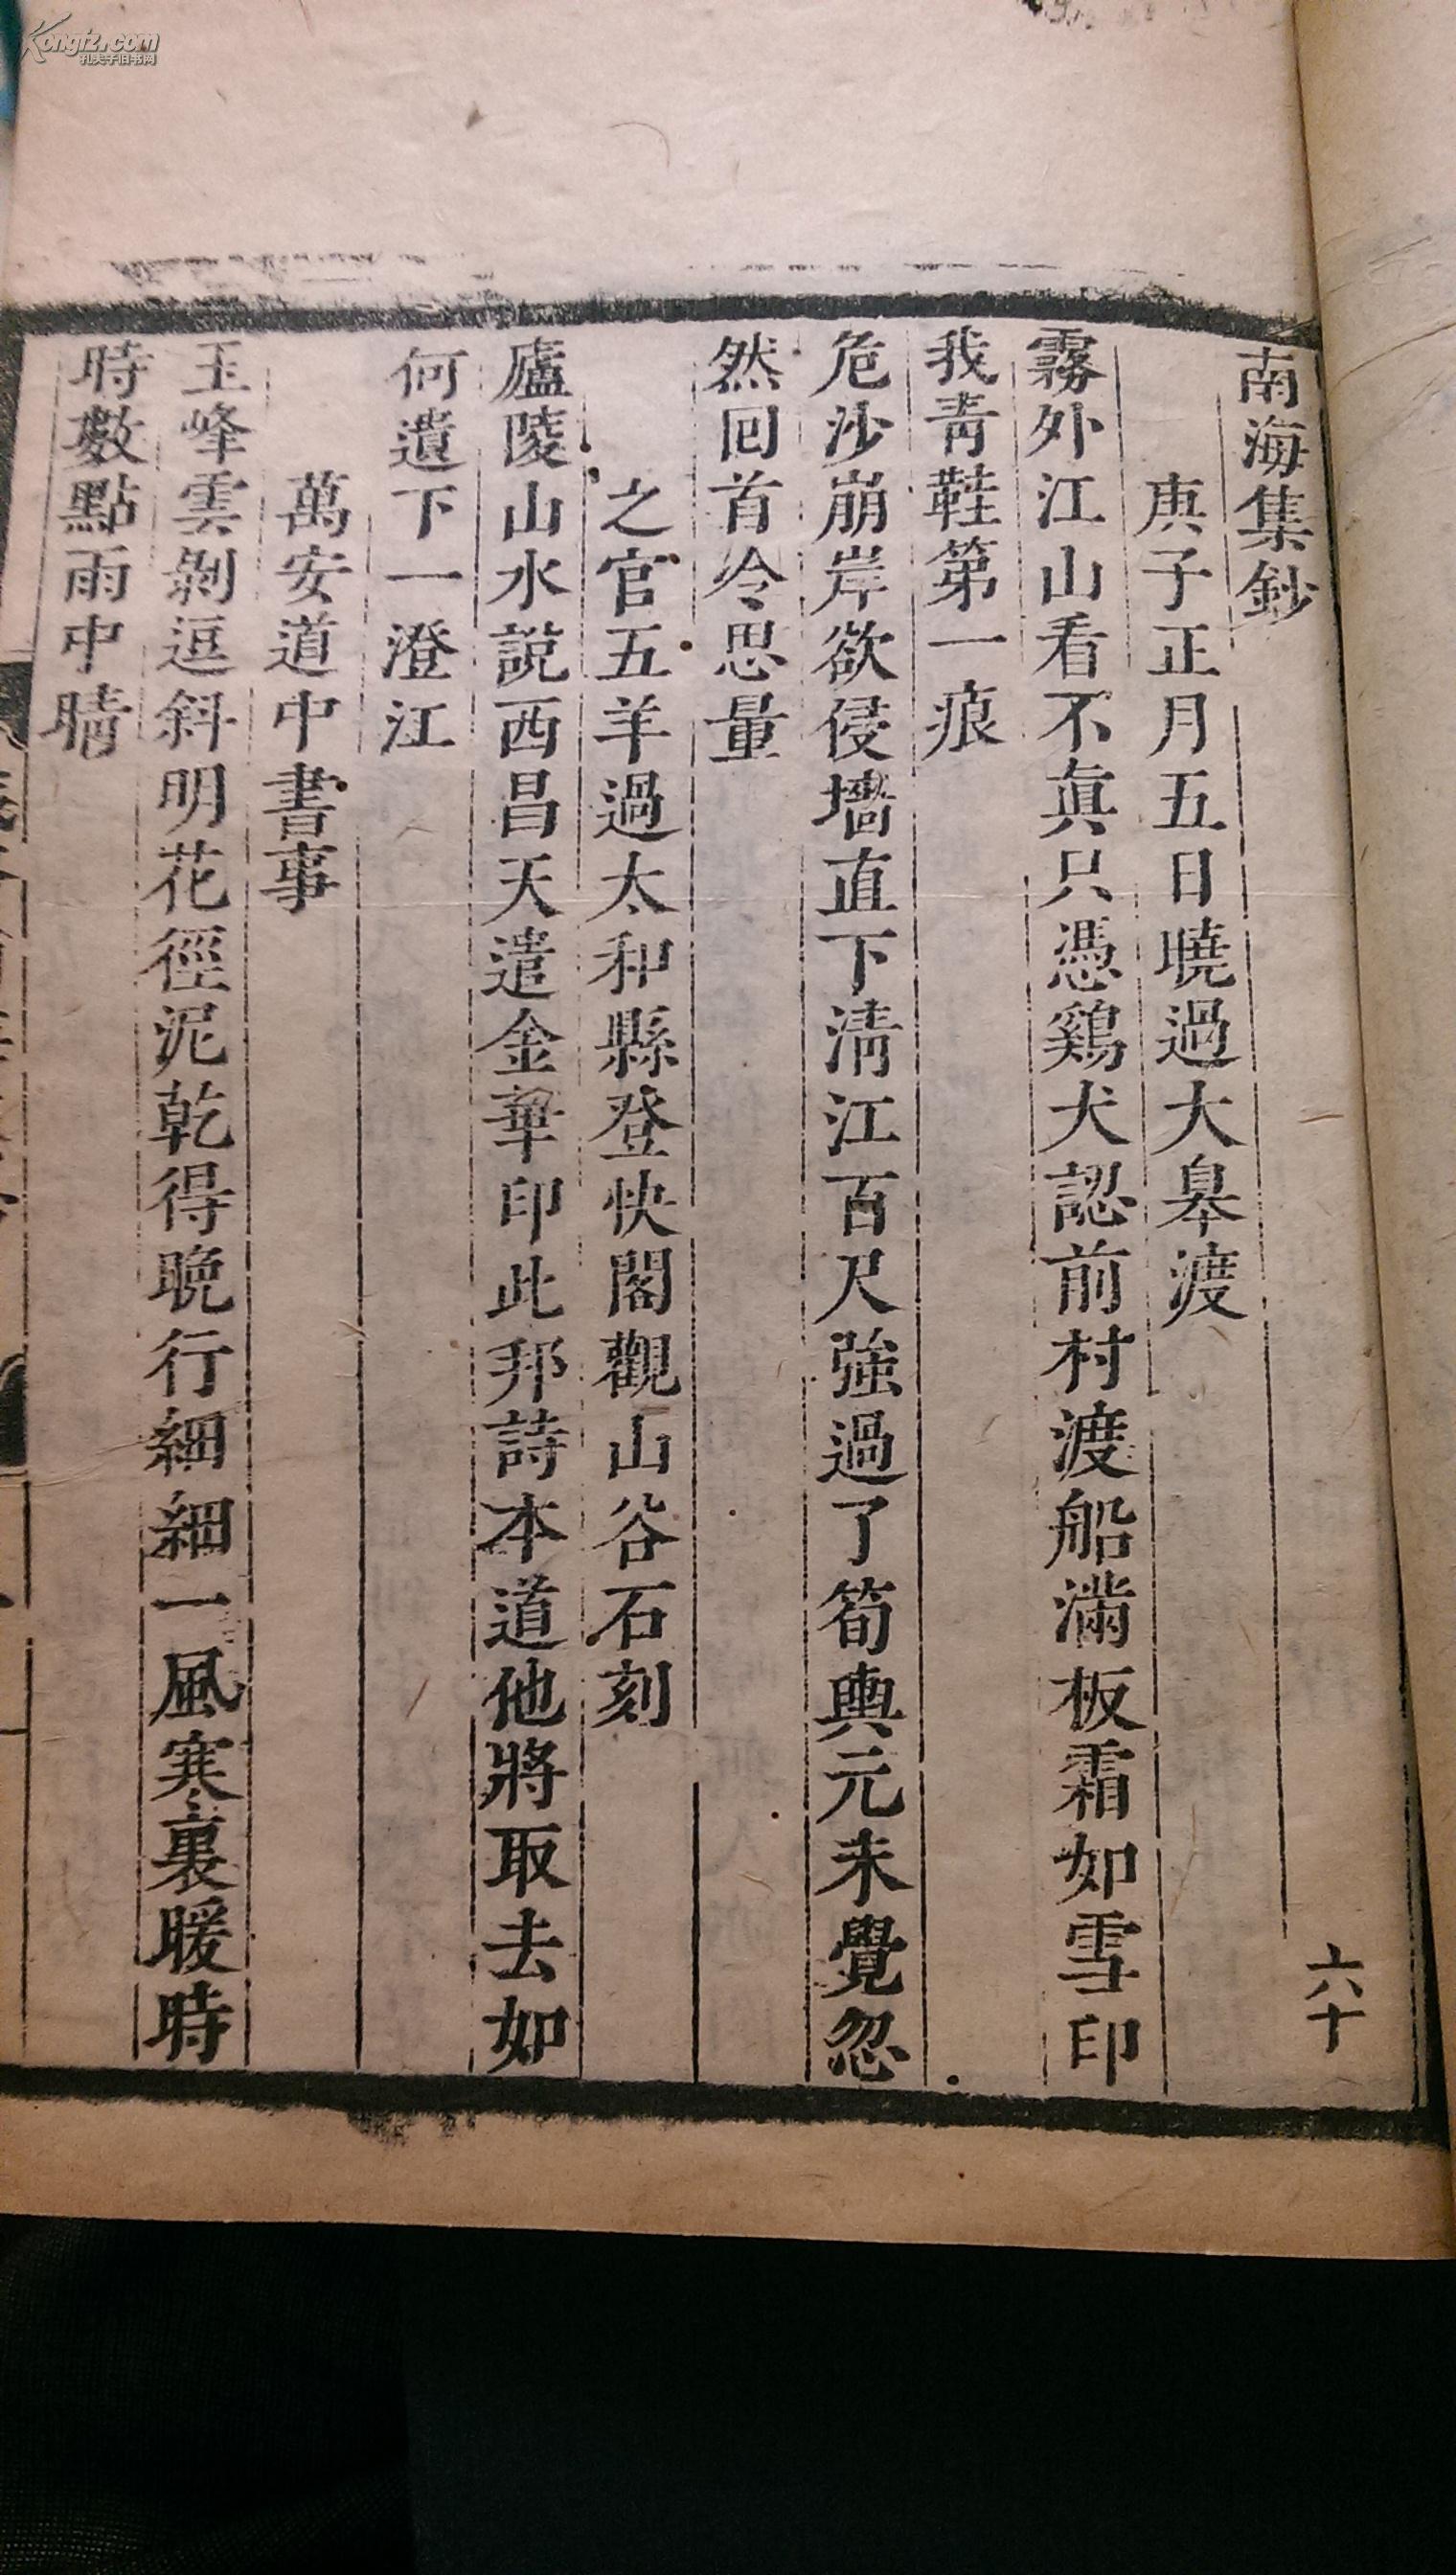 Kongfz.com
孔夫子旧书网
南海集鈔
六十
庚子正月五日曉過大皐渡
霧外江山看不眞只憑鷄犬認前村渡船滿板霜如雪印
我青鞋第一痕
危沙崩岸欲侵墻直下淸江百尺強過了筍輿元未覺忽
然回首冷思量
之官五羊過太和縣登快閣觀山谷石刻
廬陵山水說西昌天遣金華印此邦詩本道他將取去如
何遺下一澄江
萬安道中書事
玉峰雲剝逗斜明花徑泥乾得晚行細細一風寒裏暖時
時數點雨中晴